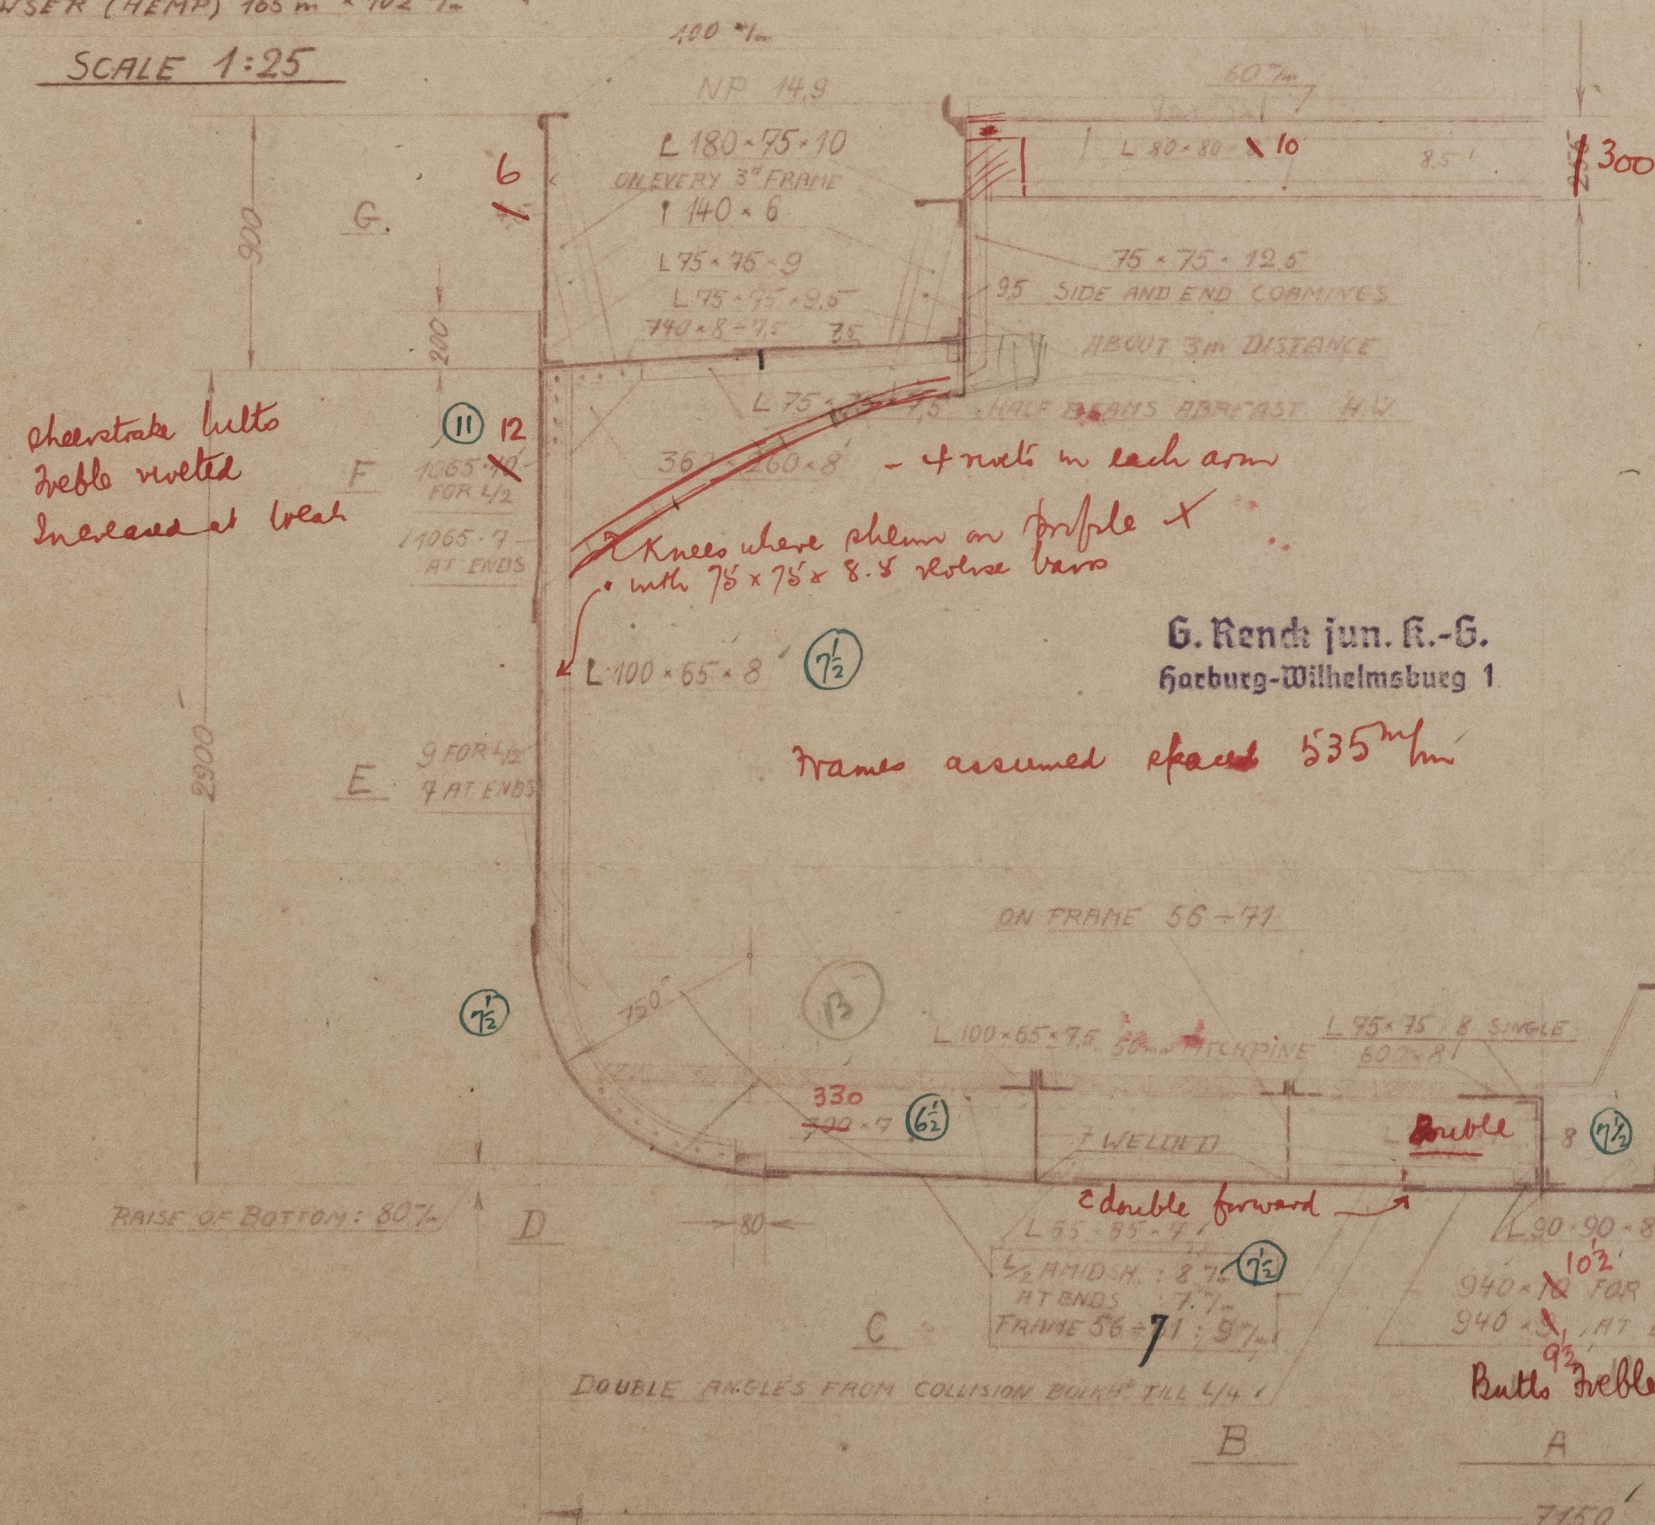 (HEMP) 165 m × 102 m/m
SCALE 1:25
100 m/m
NP 14,9
L 180×75×10
ON EVERY 3d FRAME
140×6
L 75×75×9
L 75×75×9,5
740×8÷7,5 7,5
60 m/m
L 80×80× 10
8,5
300
6
G.
900
200
75×75×12,5
9,5 SIDE AND END COAMINGS
ABOUT 3m DISTANCE
L 75×75×7,5 HALF BEAMS ABREAST H.W.
sheerstrake butts
Treble riveted
Increased at break
11 12
F 1065×10
FOR L/2
1065×7
AT ENDS
360×260×8 – 4 rivets in each arm
Knees where shewn on profile X
with 75×75×8.5 reverse bars
L 100×65×8 7½
G. Renck jun. K.-G.
Harburg-Wilhelmsburg 1
Frames assumed spaced 535 m/m
2900
E 9 FOR L/2
7 AT ENDS
ON FRAME 56÷71
750
B
7½
L 100×65×7,5 50mm PITCHPINE
L 75×75×8 SINGLE
600×8
330
300×7 6½
7 WELDED
Double
8 7½
double forward
RAISE OF BOTTOM: 80 m/m
D
80
L 65×65×7
L/2 AMIDSH. : 8 m/m 7½
AT ENDS : 7 m/m
FRAME 56÷71 : 9 m/m
7
C
L 90×90×8
10½
940×10 FOR
940×9, AT
9½
Butts Treble
DOUBLE ANGLES FROM COLLISION BULKHd TILL L/4
B
A
7150